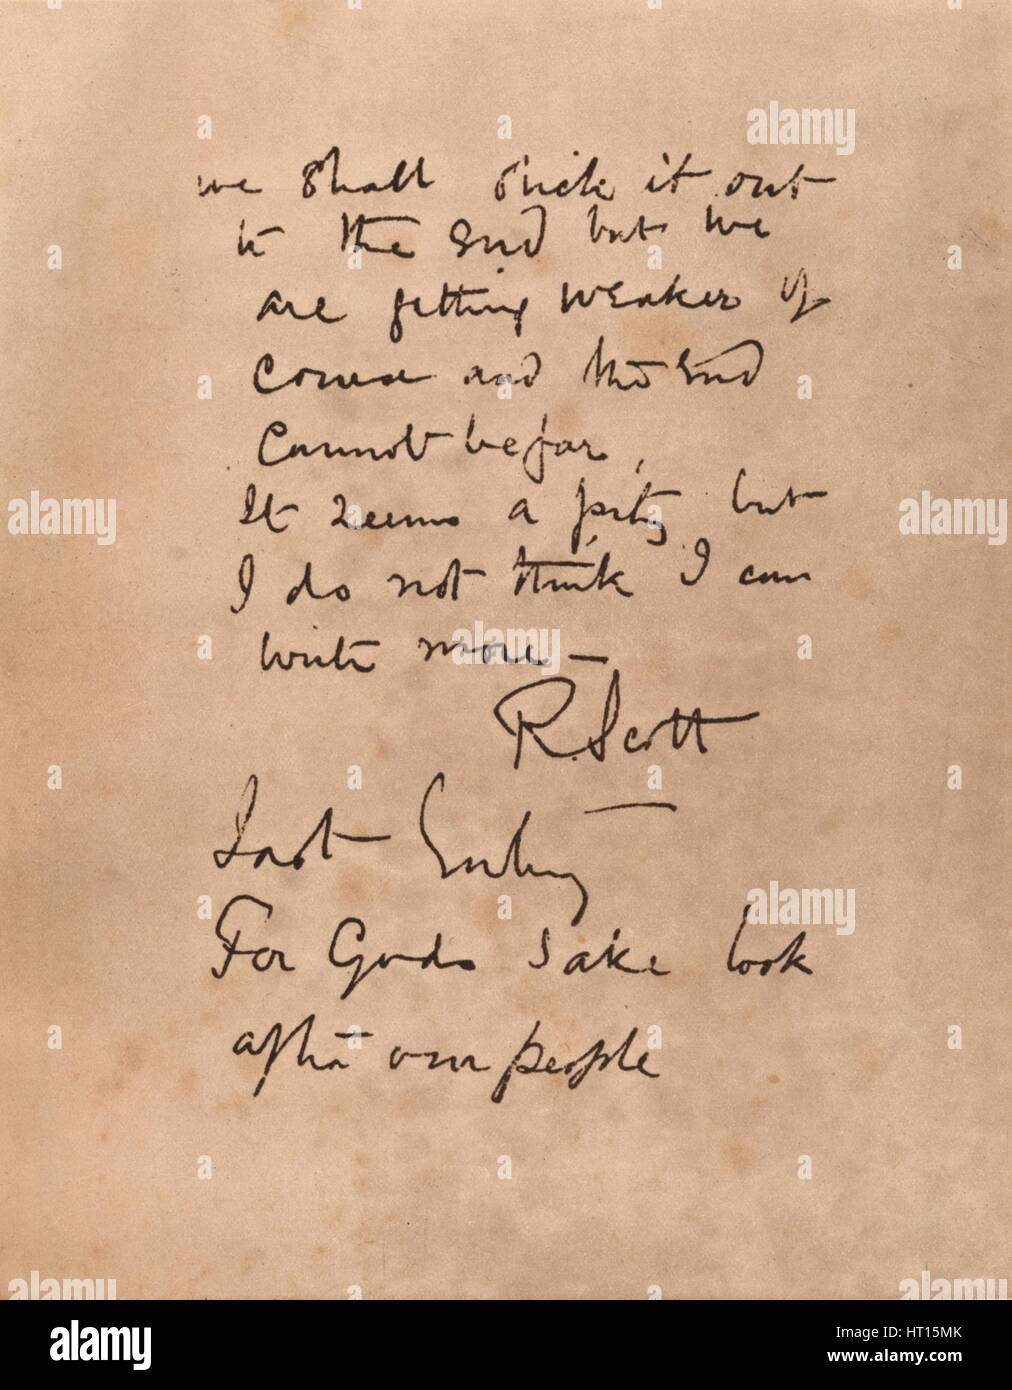 we shall stick it out
to the end but we
are getting weaker of
course and the end
cannot be far,
It seems a pity but
I do not think I can
write more —
R. Scott
Last Entry
For Gods sake look
after our people
alamy
Image ID: HT15MK
www.alamy.com